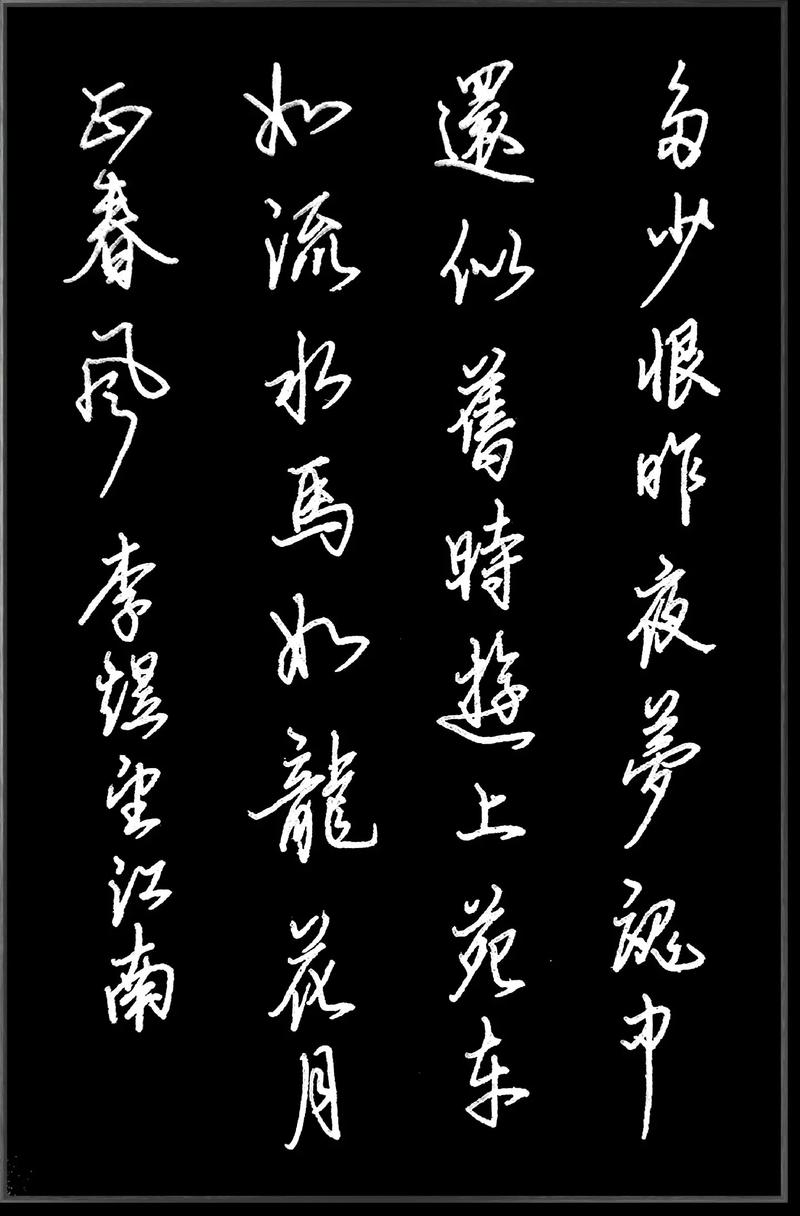 多少恨昨夜夢魂中
還似舊時遊上苑车
如流水馬如龍花月
正春風 李煜望江南